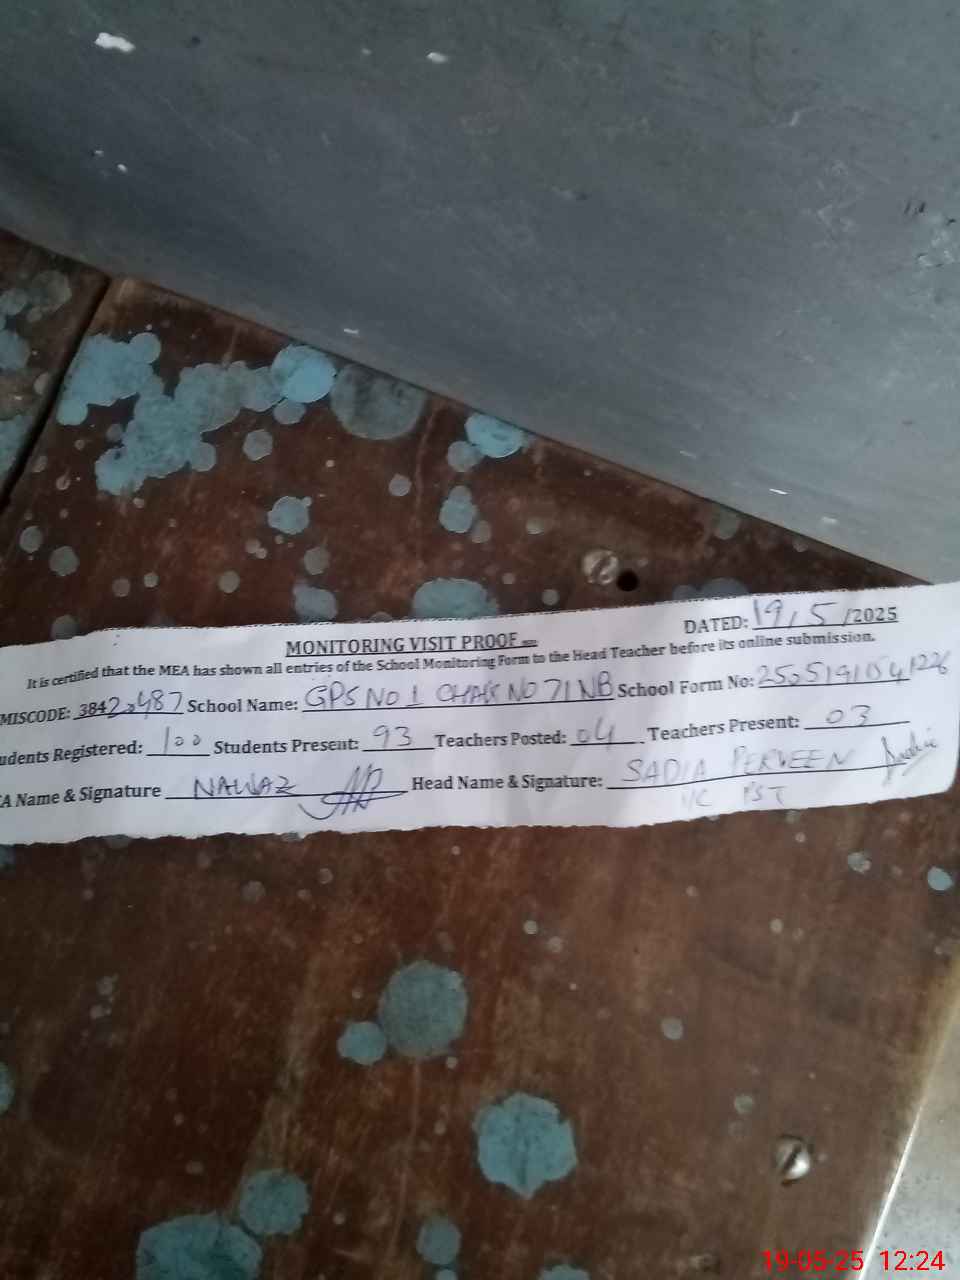 DATED: 19/5/2025
MONITORING VISIT PROOF
It is certified that the MEA has shown all entries of the School Monitoring Form to the Head Teacher before its online submission.
MISCODE: 38420487 School Name: GPS NO 1 CHAK NO 71 NB School Form No:
udents Registered: 100 Students Present: 93 Teachers Posted: 04 Teachers Present: 03
A Name & Signature NAWAZ Head Name & Signature: SADIA PERVEEN
I/C PST
19-05-25 12:24